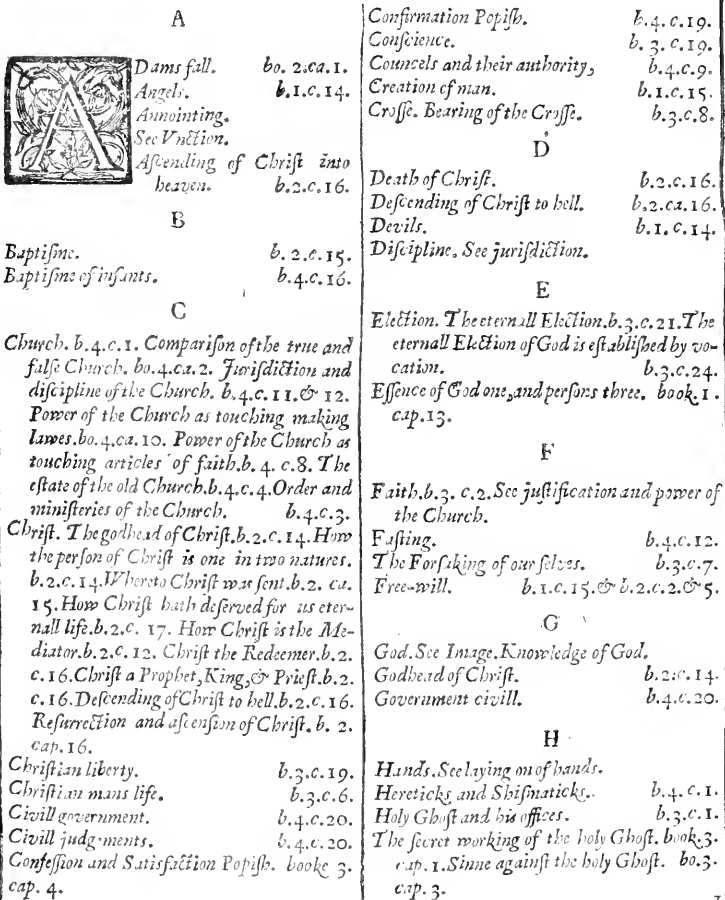 A
ADams fall. bo. 2.ca.1.
Angels. b.1.c.14.
Annointing.
See Vnction.
Aſcending of Chriſt into
heaven. b.2.c.16.
B
Baptiſme. b. 2.c.15.
Baptiſme of infants. b.4.c.16.
C
Church. b.4.c.1. Compariſon of the true and
falſe Church. bo.4.ca.2. Juriſdiction and
diſcipline of the Church. b.4.c.11.& 12.
Power of the Church as touching making
lawes.bo.4.ca.10. Power of the Church as
touching articles of faith.b. 4. c.8. The
eſtate of the old Church.b.4.c.4.Order and
miniſteries of the Church. b.4.c.3.
Chriſt. The godhead of Chriſt.b.2.c.14.How
the perſon of Chriſt is one in two natures.
b.2.c.14.Whereto Chriſt was ſent.b.2. ca.
15.How Chriſt hath deſerved for us eter-
nall life.b.2.c. 17. How Chriſt is the Me-
diator.b.2.c.12. Chriſt the Redeemer.b.2.
c.16.Chriſt a Prophet,King,& Prieſt.b.2.
c.16.Deſcending of Chriſt to hell.b.2.c.16.
Reſurrection and aſcenſion of Chriſt. b. 2.
cap.16.
Chriſtian liberty. b.3.c.19.
Chriſtian mans life. b.3.c.6.
Civill government. b.4.c.20.
Civill judgments. b.4.c.20.
Confeſſion and Satisfaction Popiſh. booke 3.
cap. 4.
Confirmation Popiſh. b.4.c.19.
Conſcience. b. 3.c.19.
Councels and their authority, b.4.c.9.
Creation of man. b.1.c.15.
Croſſe. Bearing of the Croſſe. b.3.c.8.
D
Death of Chriſt. b.2.c.16.
Deſcending of Chriſt to hell. b.2.ca.16.
Devils. b.1.c.14.
Diſcipline. See juriſdiction.
E
Election. The eternall Election.b.3.c.21.The
eternall Election of God is eſtabliſhed by vo-
cation. b.3.c.24.
Eſſence of God one,and perſons three. book.1.
cap.13.
F
Faith.b.3. c.2.See juſtification and power of
the Church.
Faſting. b.4.c.12.
The Forſaking of our ſelves. b.3.c.7.
Free-will. b.1.c.15.& b.2.c.2.& 5.
G
God.See Image.Knowledge of God.
Godhead of Chriſt. b.2.c.14.
Government civill. b.4.c.20.
H
Hands.See laying on of hands.
Hereticks and Shiſmaticks. b.4.c.1.
Holy Ghoſt and his offices. b.3.c.1.
The ſecret working of the holy Ghoſt. book.3.
cap.1.Sinne againſt the holy Ghoſt. bo.3.
cap.3.